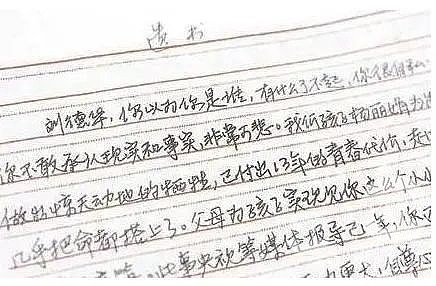 遗书
刘德华，你以为你是谁，有什么了不起，你很自私
你不敢承认现实和事实，非常可悲。我们孩子杨丽娟为
做出惊天动地的牺牲，已付出13年的青春代价，走
几乎把命都搭上了。父母为孩子实现见你这么个小小
此事央视等媒体报导已一年，你
更大，但尊